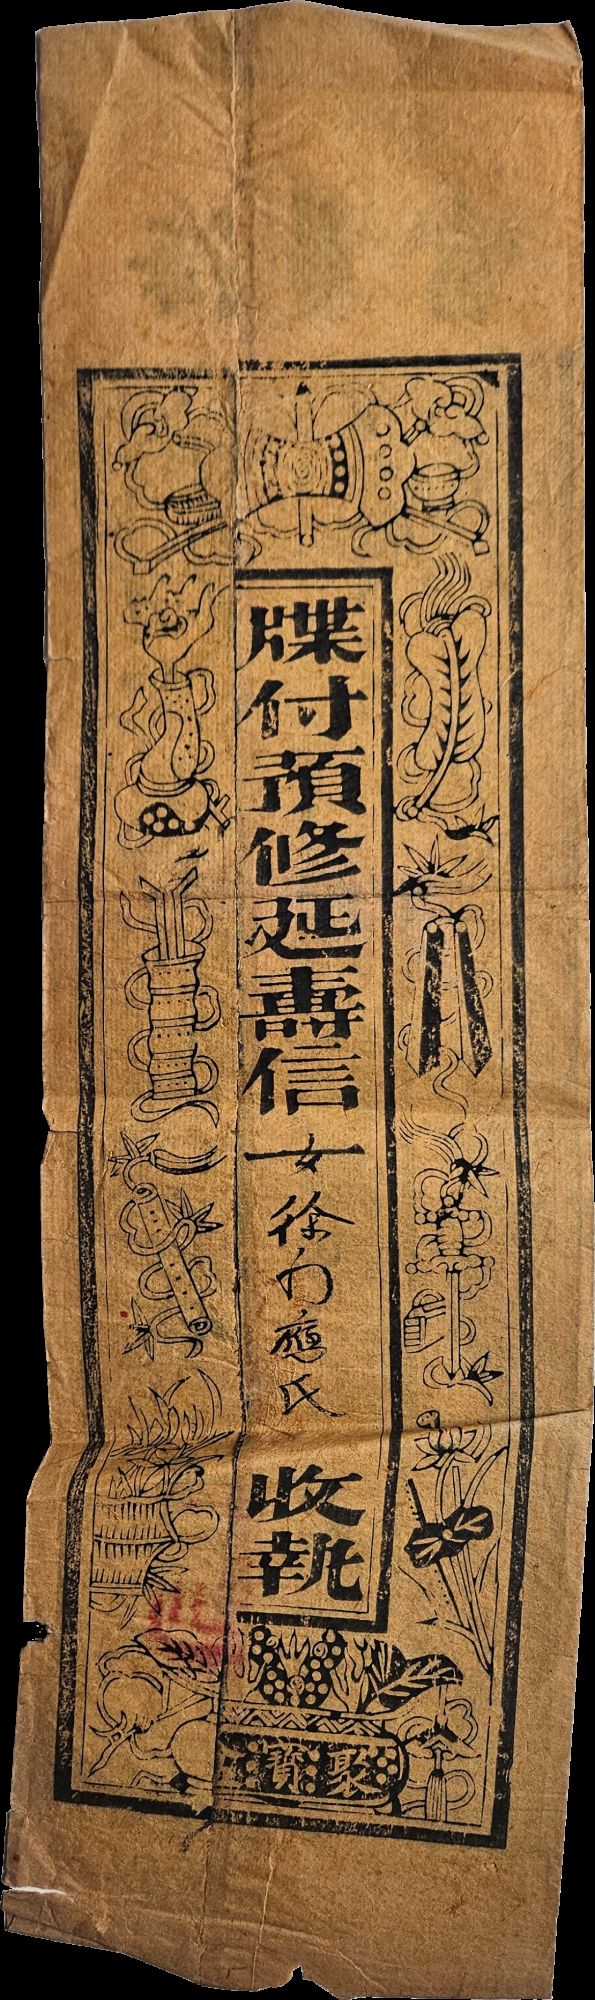 牒付預修延壽信女徐门應氏 收執
聚寶